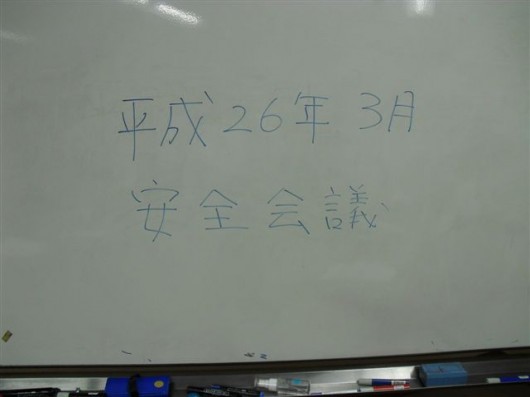 平成26年3月
安全会議